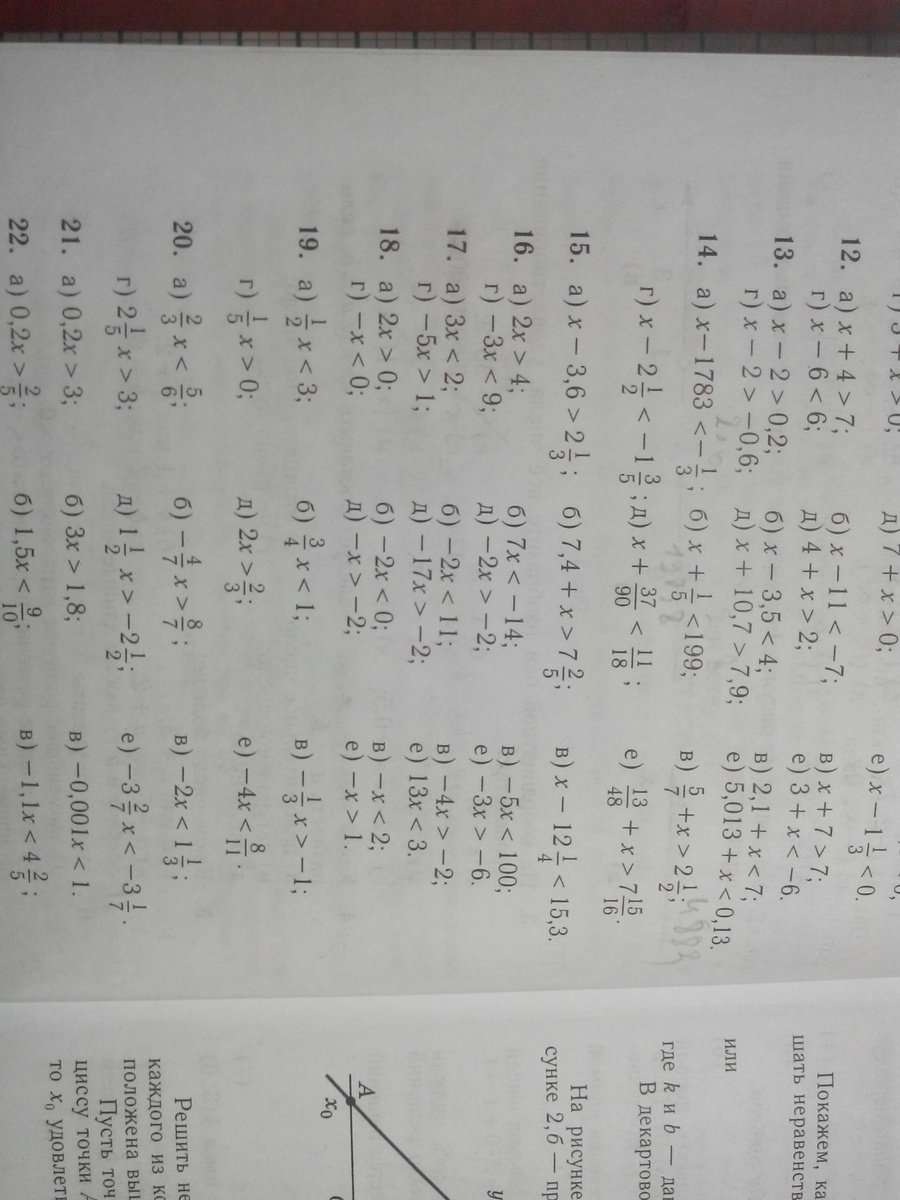 г) 5 + x > 0; д) 7 + x > 0; е) x − 1 1/3 < 0.
12. а) x + 4 > 7; б) x − 11 < −7; в) x + 7 > 7;
г) x − 6 < 6; д) 4 + x > 2; е) 3 + x < −6.
13. а) x − 2 > 0,2; б) x − 3,5 < 4; в) 2,1 + x < 7;
г) x − 2 > −0,6; д) x + 10,7 > 7,9; е) 5,013 + x < 0,13.
14. а) x−1783 < −1/3; б) x + 1/5 <199; в) 5/7 + x > 2 1/2;
г) x − 2 1/2 < −1 3/5; д) x + 37/90 < 11/18; е) 13/48 + x > 7 15/16.
15. а) x − 3,6 > 2 1/3; б) 7,4 + x > 7 2/5; в) x − 12 1/4 < 15,3.
16. а) 2x > 4; б) 7x < −14; в) −5x < 100;
г) −3x < 9; д) −2x > −2; е) −3x > −6.
17. а) 3x < 2; б) −2x < 11; в) −4x > −2;
г) −5x > 1; д) −17x > −2; е) 13x < 3.
18. а) 2x > 0; б) −2x < 0; в) −x < 2;
г) −x < 0; д) −x > −2; е) −x > 1.
19. а) 1/2 x < 3; б) 3/4 x < 1; в) −1/3 x > −1;
г) 1/5 x > 0; д) 2x > 2/3; е) −4x < 8/11.
20. а) 2/3 x < 5/6; б) −4/7 x > 8/7; в) −2x < 1 1/3;
г) 2 1/5 x > 3; д) 1 1/2 x > −2 1/2; е) −3 2/7 x < −3 1/7.
21. а) 0,2x > 3; б) 3x > 1,8; в) −0,001x < 1.
22. а) 0,2x > 2/5; б) 1,5x < 9/10; в) −1,1x < 4 2/5;
Покажем, ка
шать неравенств
или
где k и b — да
В декартово
На рисунке
сунке 2,б — пр
y
A
x₀
Решить не
каждого из ко
положена выш
Пусть точ
циссу точки A
то x₀ удовлет